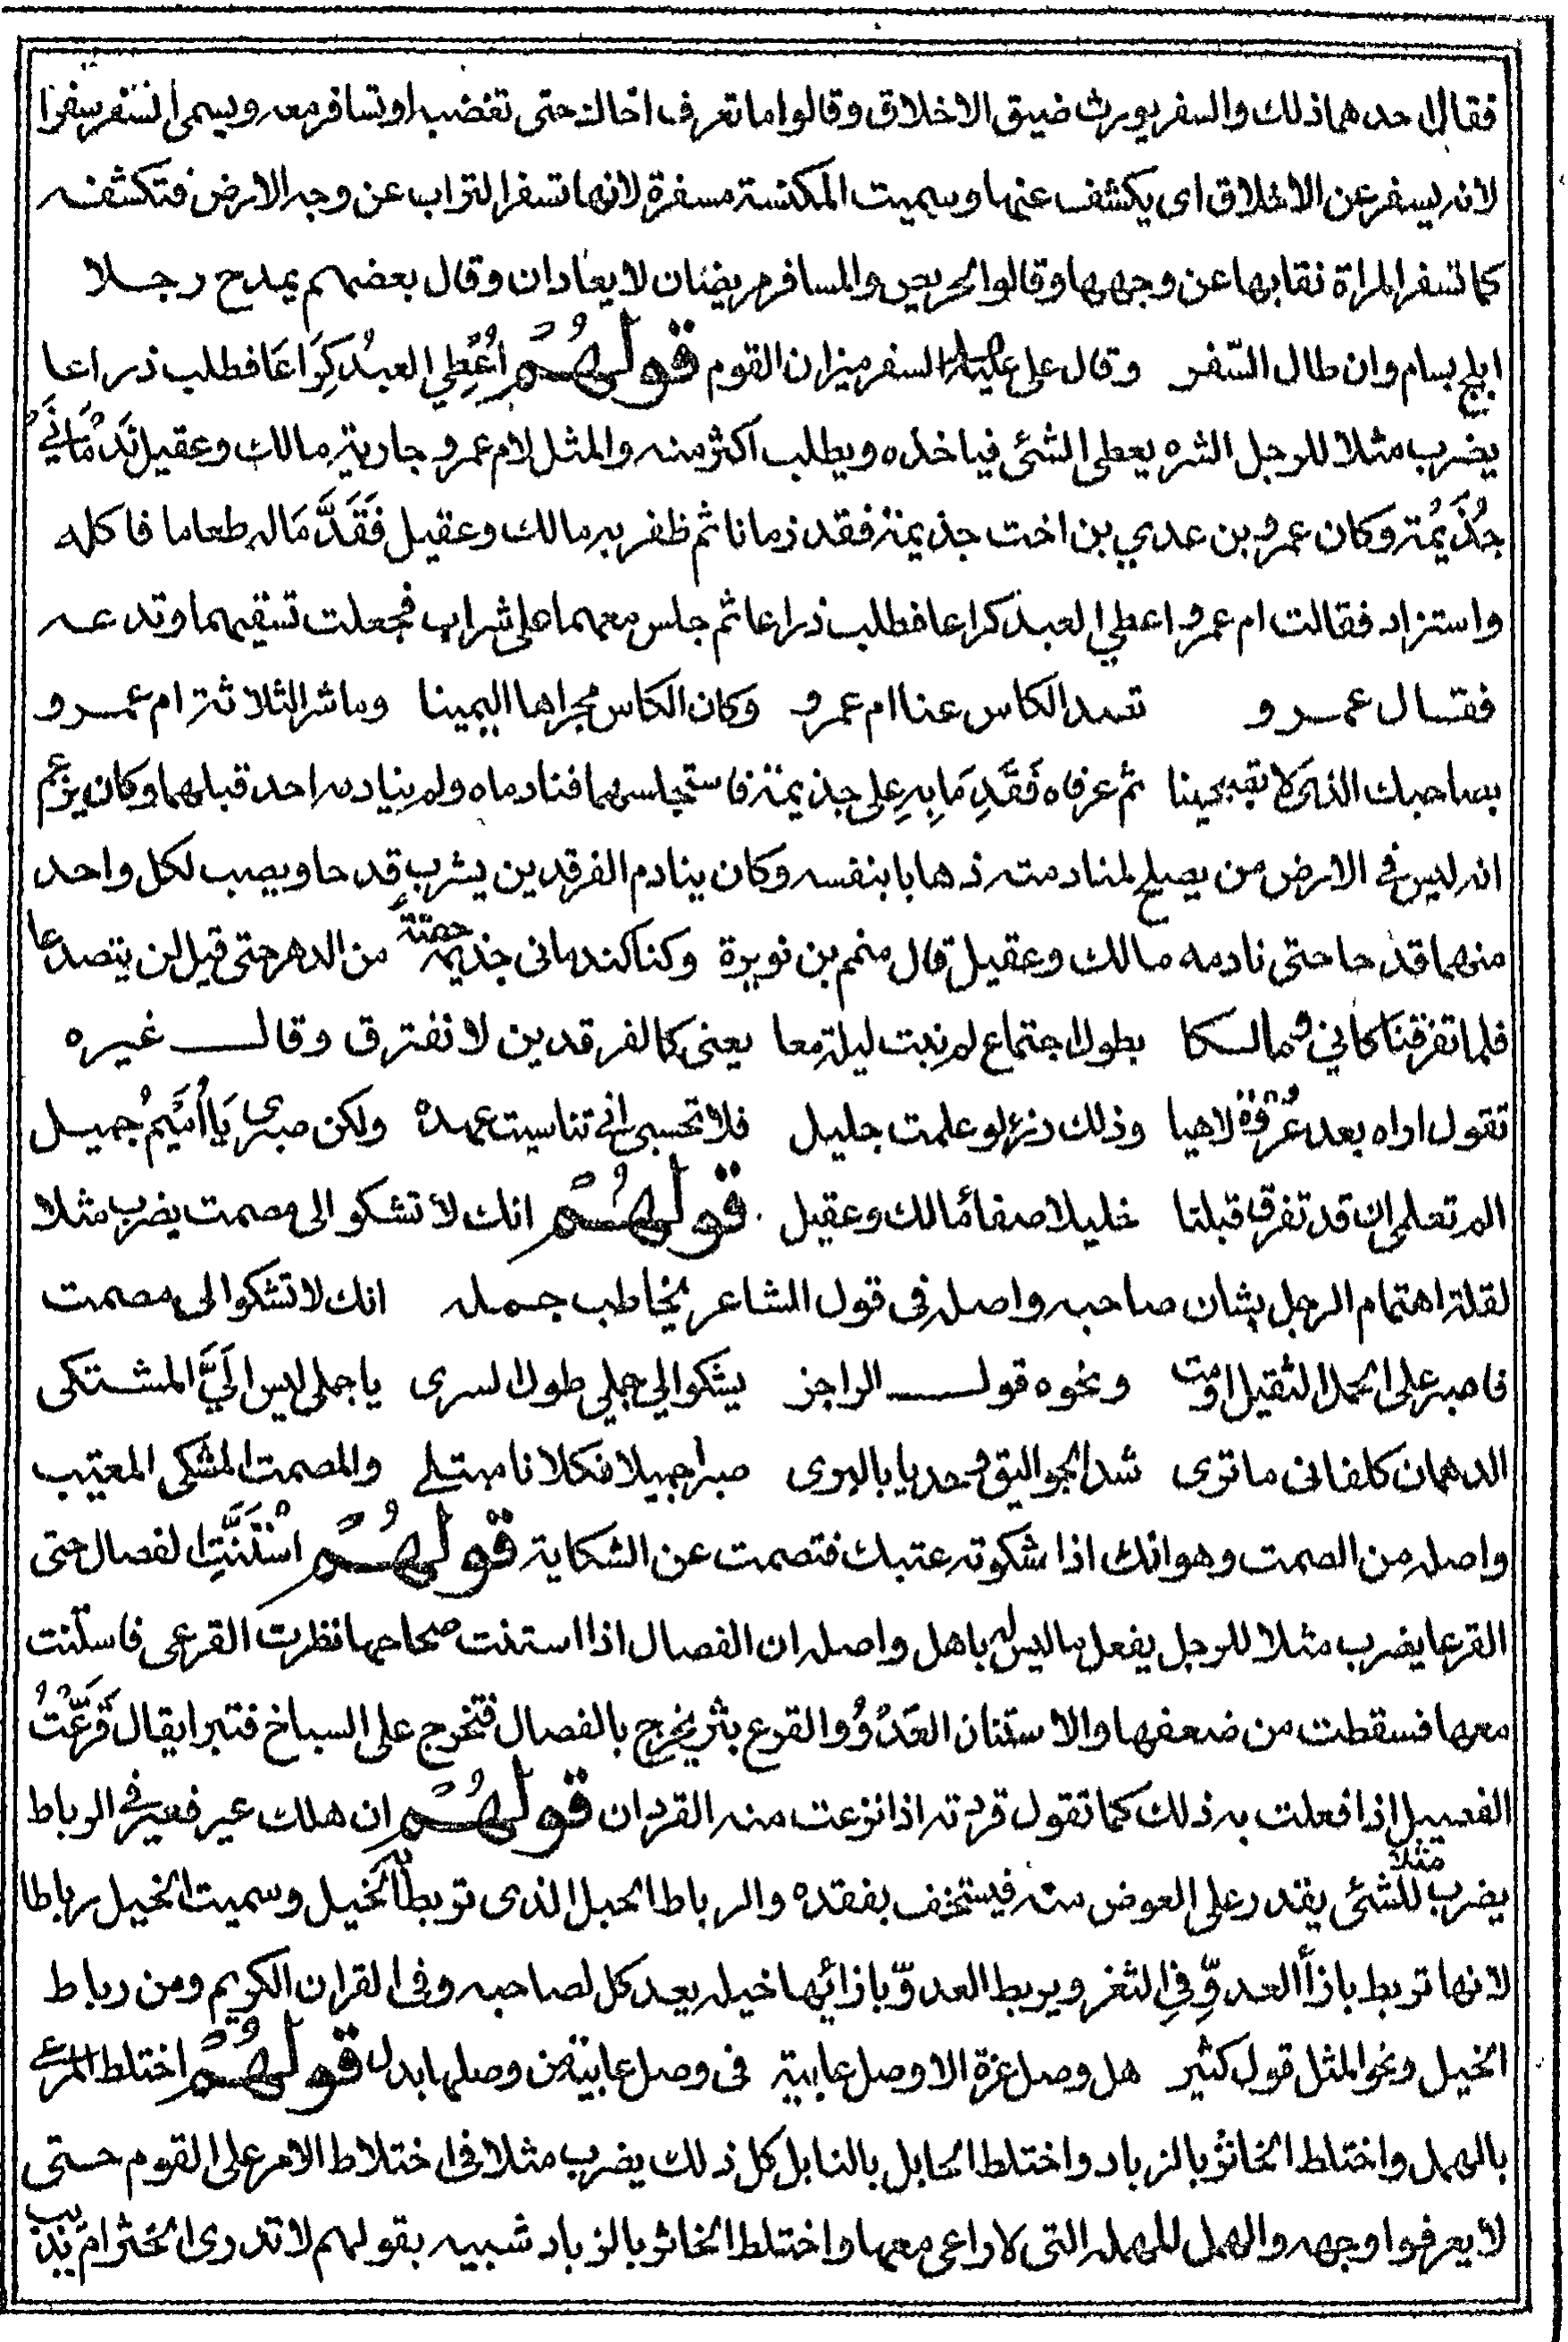 فقال احدهما ذلك والسفر يورث ضيق الاخلاق وقالوا ما تعرف اخاك حتى تغضبه او تسافر معه ويسمى السفر سفرا
لانه يسفر عن الاخلاق اى يكشف عنها وسميت المكنسة مسفرة لانها تسفر التراب عن وجه الارض فتكشفه
كما تسفر المراة نقابها عن وجهها وقالوا الحريص والمسافر مريضان لا يعادان وقال بعضهم يمدح رجلا
ابلج بسام وان طال السّفر وقال على السفر ميزان القوم قولهُم اُعْطِي العبدُ كِرَاعَا فطلب ذراعا
يضرب مثلا للرجل الشره يعطى الشئ فياخذه ويطلب اكثر منه والمثل لام عمرو جارية مالك وعقيل نَدْمَانَي
جُذَيْمُة وكان عمرو بن عدي بن اخت جذيمة فقد زمانا ثم ظفر به مالك وعقيل فَقَدَّمَا له طعاما فاكله
واستزاد فقالت ام عمرو اعطي العبد كراعا فطلب ذراعا ثم جلس معهما على شراب فجعلت تسقيهما وتدعه
فقال عمرو تصد الكاس عنا ام عمرو وكان الكاس مجراها اليمينا وما شر الثلاثة ام عمرو
بصاحبك الذى لا تصبحينا ثم عرفاه فَقَدِمَا بِهِ على جذيمة فاستجلسهما فنادماه ولم ينادمه احد قبلهما وكان يزعم
انه ليس في الارض من يصلح لمنادمته ذهابا بنفسه وكان ينادم الفرقدين يشرب قدحا ويصب لكل واحد
منهما قدحا حتى نادمه مالك وعقيل قال متمم بن نويرة وكنا كندمانى جذيمة حقبة من الدهر حتى قيل لن يتصدعا
فلما تفرقنا كاني ومالكا بطول اجتماع لم نبت ليلة معا يعنى كالفرقدين لا نفترق وقال غيره
تقول اراه بعد عُرْوَةَ لاهيا وذلك رزء لو علمت جليل فلا تحسبى اني تناسيت عهده ولكن صبرى يَا أُمَيْمُ جميل
الم تعلمى ان قد تفرق قبلنا خليلا صفاء مالك وعقيل قولهُم انك لا تشكو الى مصمت يضرب مثلا
لقلة اهتمام الرجل بشان صاحبه واصله فى قول الشاعر يخاطب جمله انك لا تشكو الى مصمت
فاصبر على الحمل الثقيل او مت ونحوه قول الراجز يشكو الي جملي طول السرى يا جملى ليس الَيَّ المشتكى
الدهمان كلفانى ما ترى شد الجواليق وجذبا بالبرى صبرا جميلا فكلانا مبتلے والمصمت المشكى المعتب
واصله من الصمت وهو انك اذا شكوته عتبك فتصمت عن الشكاية قولهُم اسْتَنَّتِ الفصال حتى
القرعا يضرب مثلا للرجل يفعل ما ليس له باهل واصله ان الفصال اذا استنت صحاحها نظرت القرعى فاستنت
معها فسقطت من ضعفها والاستنان العَدْوُ والقرع بثر يخرج بالفصال فتخرج على السباخ فتبرا يقال قَرَّعْتُ
الفصيل اذا فعلت به ذلك كما تقول قردته اذا نزعت منه القردان قولهُم ان هلك عير فعير في الرباط
يضرب مثلا للشئ يقدر على العوض منه فيستخف بفقده والرباط الحبل الذى تربط به الخيل وسميت الخيل رباطا
لانها تربط بازأ العدوِّ فيِ الثغر ويربط العدوّ بازائها خيله يعد كل لصاحبه وفى القران الكريم ومن رباط
الخيل ونحو المثل قول كثير هل وصل عزة الا وصل غانية فى وصل غانية من وصلها بدل قولهُم اختلط المرعى
بالهمل واختلط الخاثر بالزباد واختلط الحابل بالنابل كل ذلك يضرب مثلا فى اختلاط الامر على القوم حتى
لا يعرفوا وجهه والهمل المهملة التى لا راعى معها واختلط الخاثر بالزباد شبيه بقولهم لا تدرى اتخثر ام تذيب